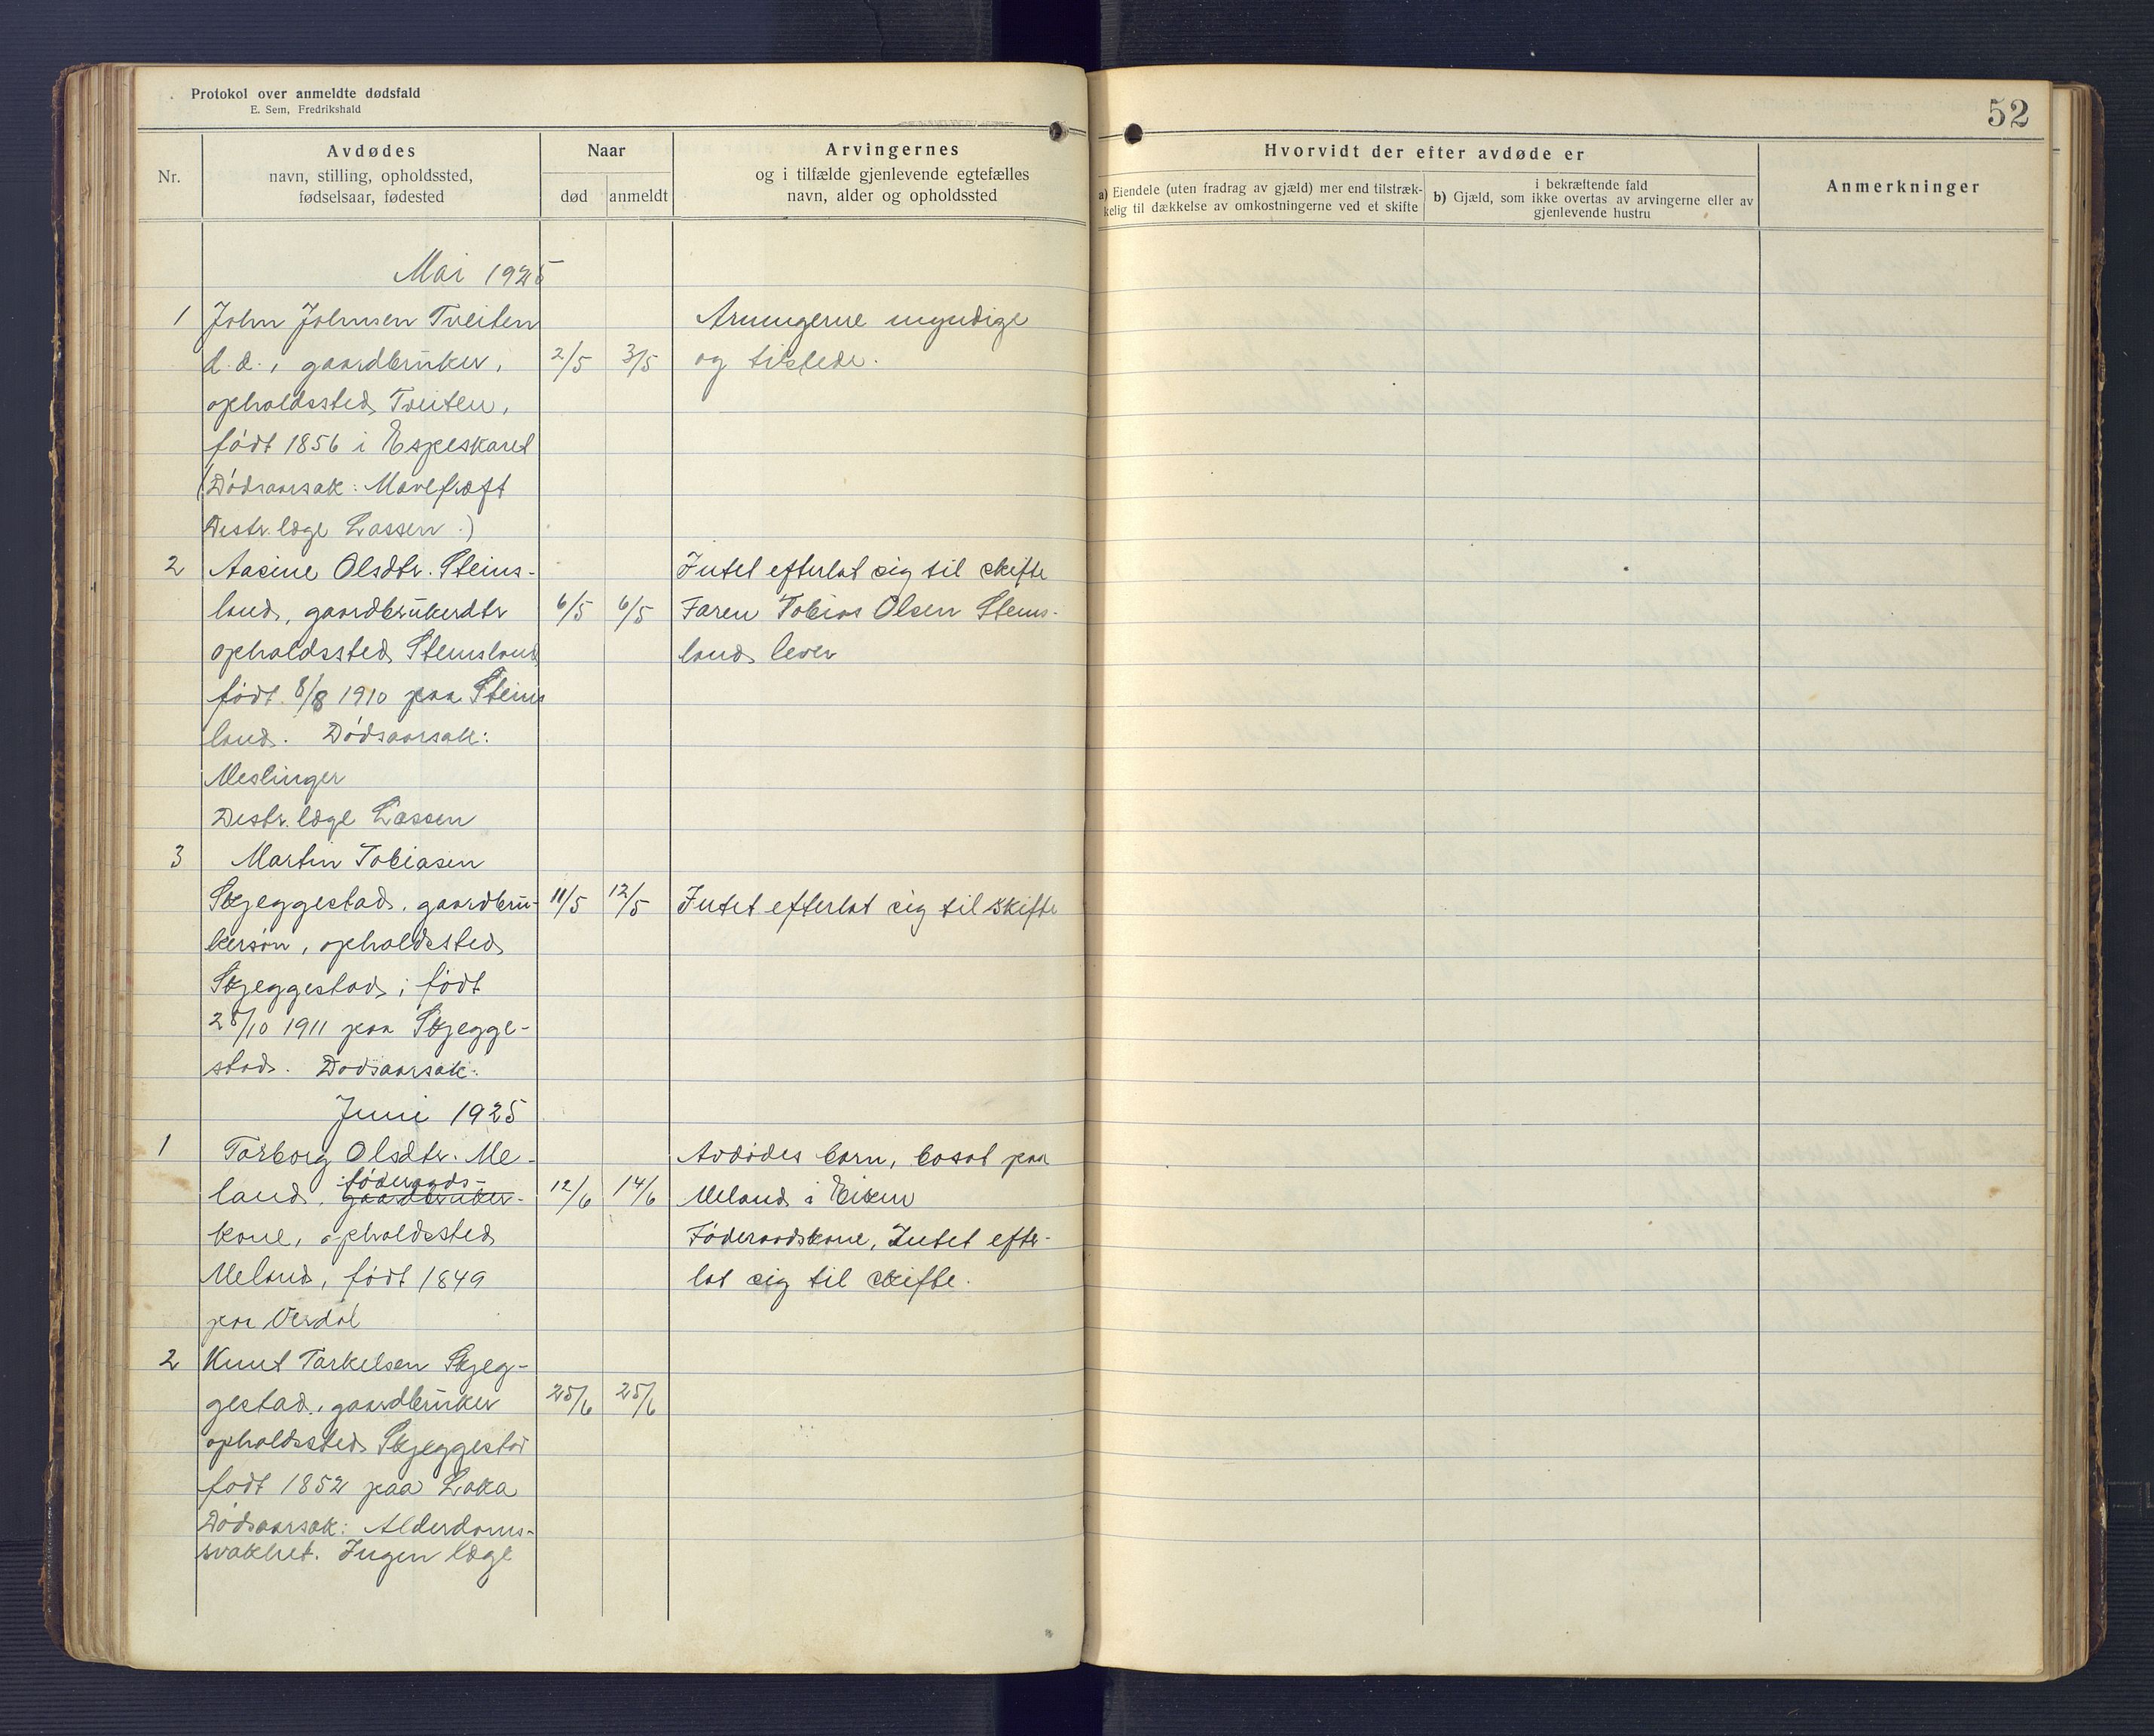 Protokol over anmeldte dødsfald
E. Sem, Fredrikshald
52
Nr.
Avdødes
navn, stilling, opholdssted,
fødselsaar, fødested
Naar
død
anmeldt
Arvingernes
og i tilfælde gjenlevende egtefælles
navn, alder og opholdssted
Hvorvidt der efter avdøde er
a) Eiendele (uten fradrag av gjæld) mer end tilstræk-
kelig til dækkelse av omkostningerne ved et skifte
i bekræftende fald
b) Gjæld, som ikke overtas av arvingerne eller av
gjenlevende hustru
Anmerkninger
Mai 1925
1 John Johnsen Tveiten Arvingerne myndige
d.d., gaardbruker, 2/5 3/5 og tilstede.
opholdssted Tveiten,
født 1856 i Espeskaret
(Dødsaarsak: Mavekræft
Distr. læge Lassen.)
2 Aasine Olsdtr. Steins- Intet efterlat sig til skifte
land, gaardbrukerdtr 6/5 6/5 Faren Tobias Olsen Steins-
opholdssted Steinsland land lever
født 8/8 1910 paa Steins
land. Dødsaarsak:
Meslinger
Distr. læge Lassen
3 Martin Tobiasen
Skjeggestad, gaardbru- 11/5 12/5 Intet efterlat sig til skifte
kersøn, opholdssted
Skjeggestad, født
28/10 1911 paa Skjegge-
stad. Dødsaarsak:
Juni 1925
1 Torborg Olsdtr. Me- Avdødes barn, bosat paa
føderaads-
land, gaardbruker- 12/6 14/6 Meland i Eiken
kone, opholdssted Føderaadskone, Intet efter-
Meland, født 1849 lat sig til skifte.
paa Verdal
2 Knut Tarkelsen Skjeg-
gestad, gaardbruker 25/6 25/6
opholdssted Skjeggestad
født 1852 paa Laka
Dødsaarsak: Alderdoms-
svakhet. Ingen læge